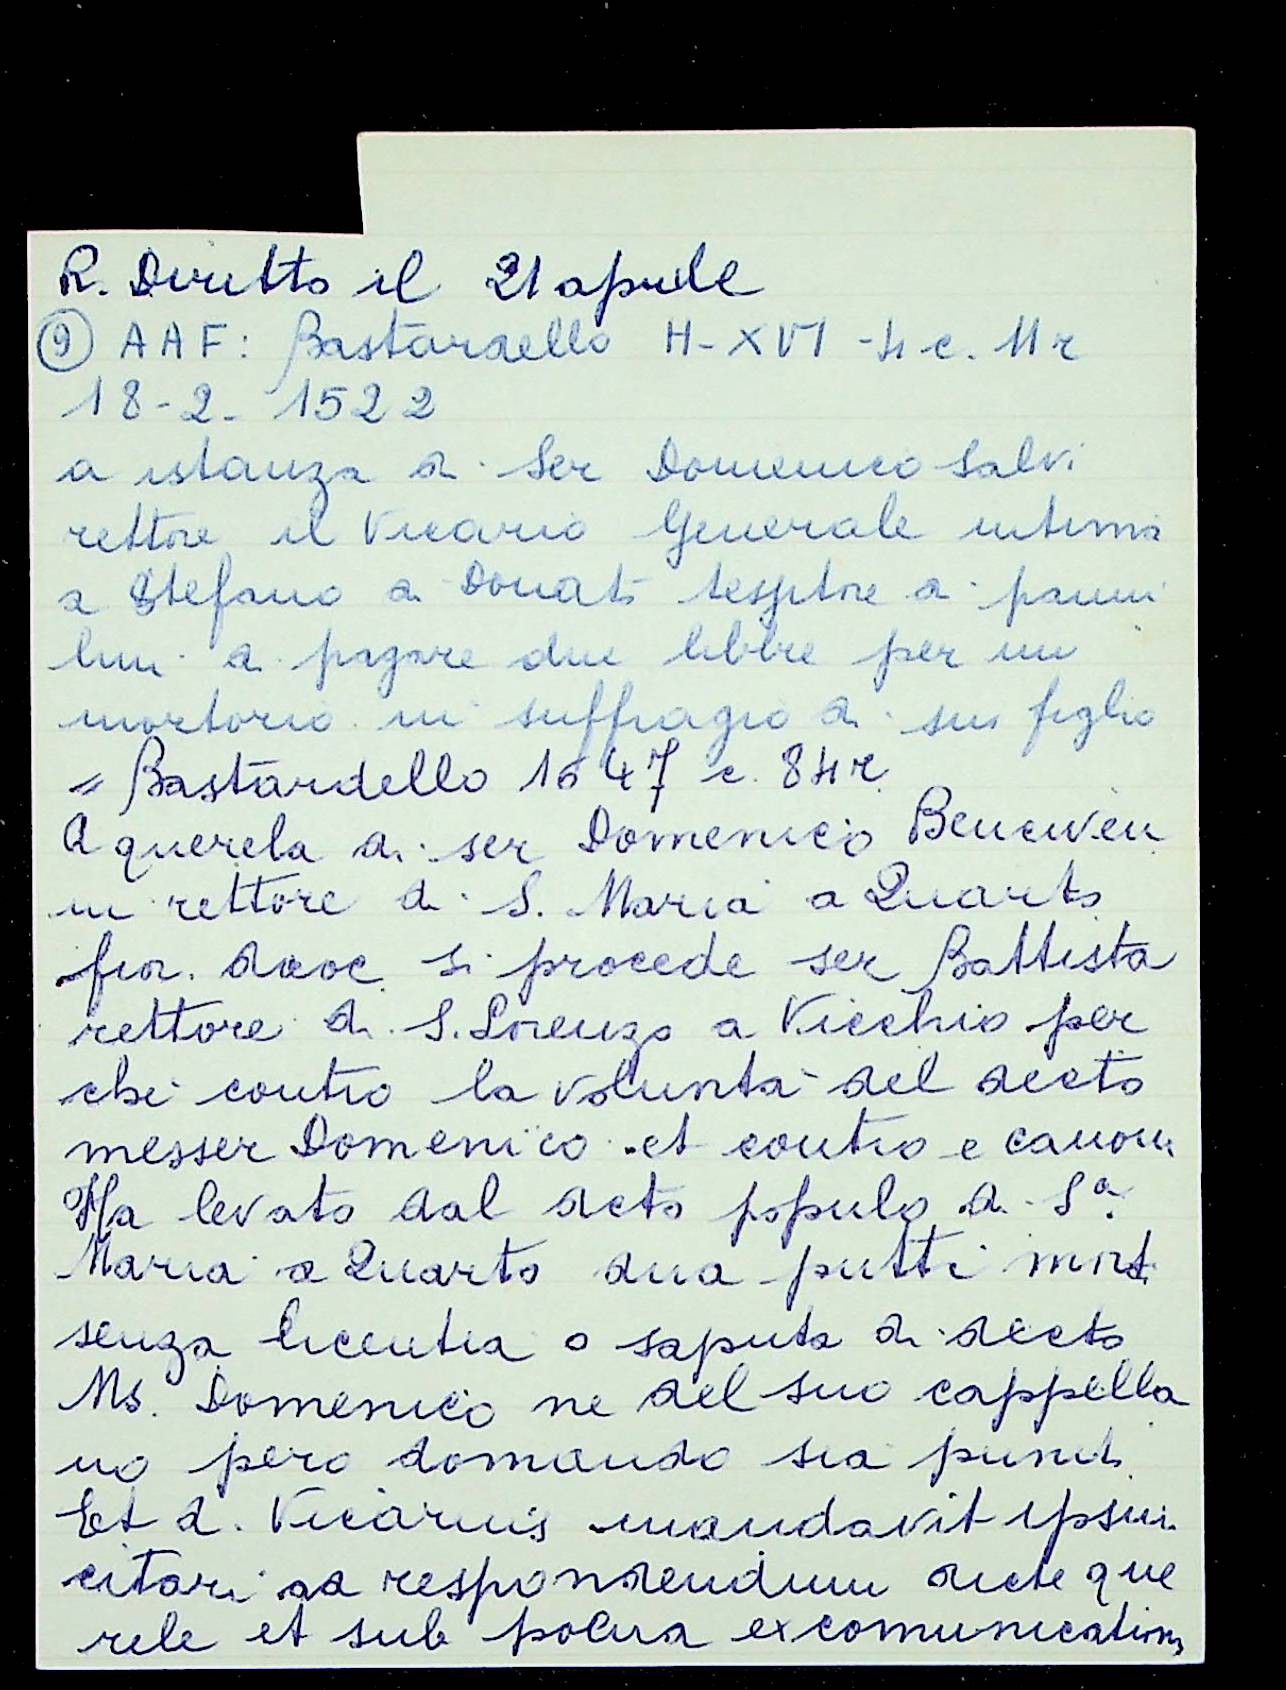 R. Diritto il 21 aprile
⑨ AAF: Bastardello H-XVI-4 c. 11r
18-2-1522
a istanza di Ser Domenico Salvi
rettore il Vicario Generale intima
a Stefano di Donato a panni
lini a pagare due libbre per un
mortorio in suffragio di suo figlio
= Bastardello c. 84r
A querela di ser Domenico Benciven
ni rettore di S. Maria a Quarto
fior. dioc. si procede ser Battista
rettore di S. Lorenzo a Vicchio per
che contro la volunta del decto
messer Domenico et contro e canoni
Ha levato dal decto populo di Sa.
Maria a Quarto dua putti morti
senza licentia o saputa di decto
Ms. Domenico ne del suo cappella
no pero domando sia punito.
Et d. Vicarius mandavit ipsum
citari ad respondendum dicte que
rele et sub poena excomunicationis